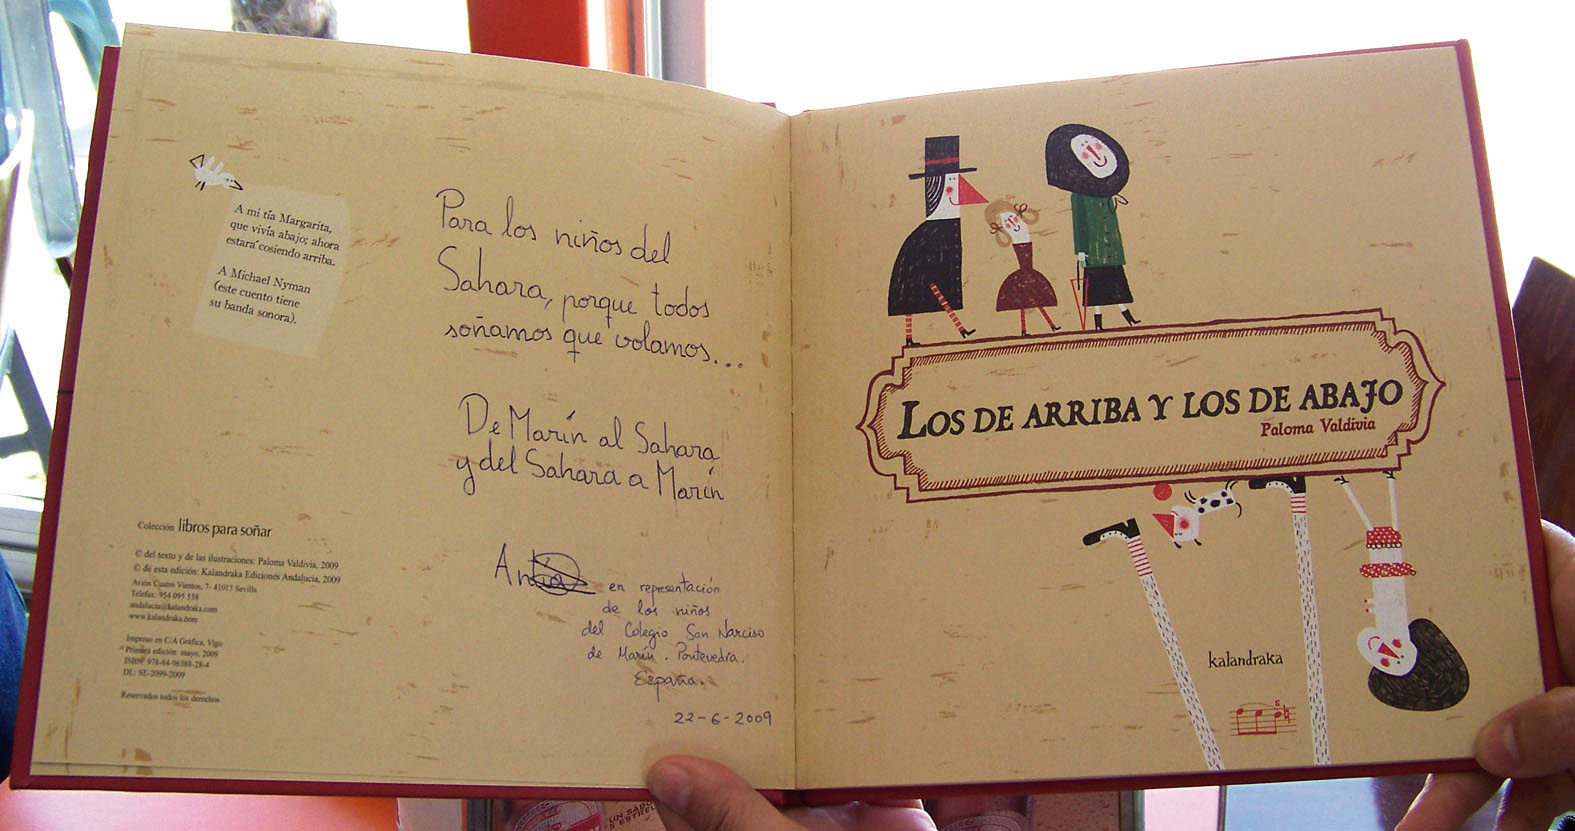 A mi tía Margarita,
que vivía abajo; ahora
estará cosiendo arriba.
A Michael Nyman
(este cuento tiene
su banda sonora).
Para los niños del
Sahara, porque todos
soñamos que volamos...
De Marín al Sahara
y del Sahara a Marín
en representación
de los niños
del Colegio San Narciso
de Marín. Pontevedra.
España.
22-6-2009
Colección libros para soñar
© del texto y de las ilustraciones: Paloma Valdivia, 2009
© de esta edición: Kalandraka Ediciones Andalucía, 2009
Avión Cuatro Vientos, 7- 41013 Sevilla
Telefax: 954 095 558
andalucia@kalandraka.com
www.kalandraka.com
Impreso en C/A Gráfica, Vigo
Primera edición: mayo, 2009
ISBN: 978-84-96388-28-4
DL: SE-2099-2009
Reservados todos los derechos
LOS DE ARRIBA Y LOS DE ABAJO
Paloma Valdivia
kalandraka
UN SABOR